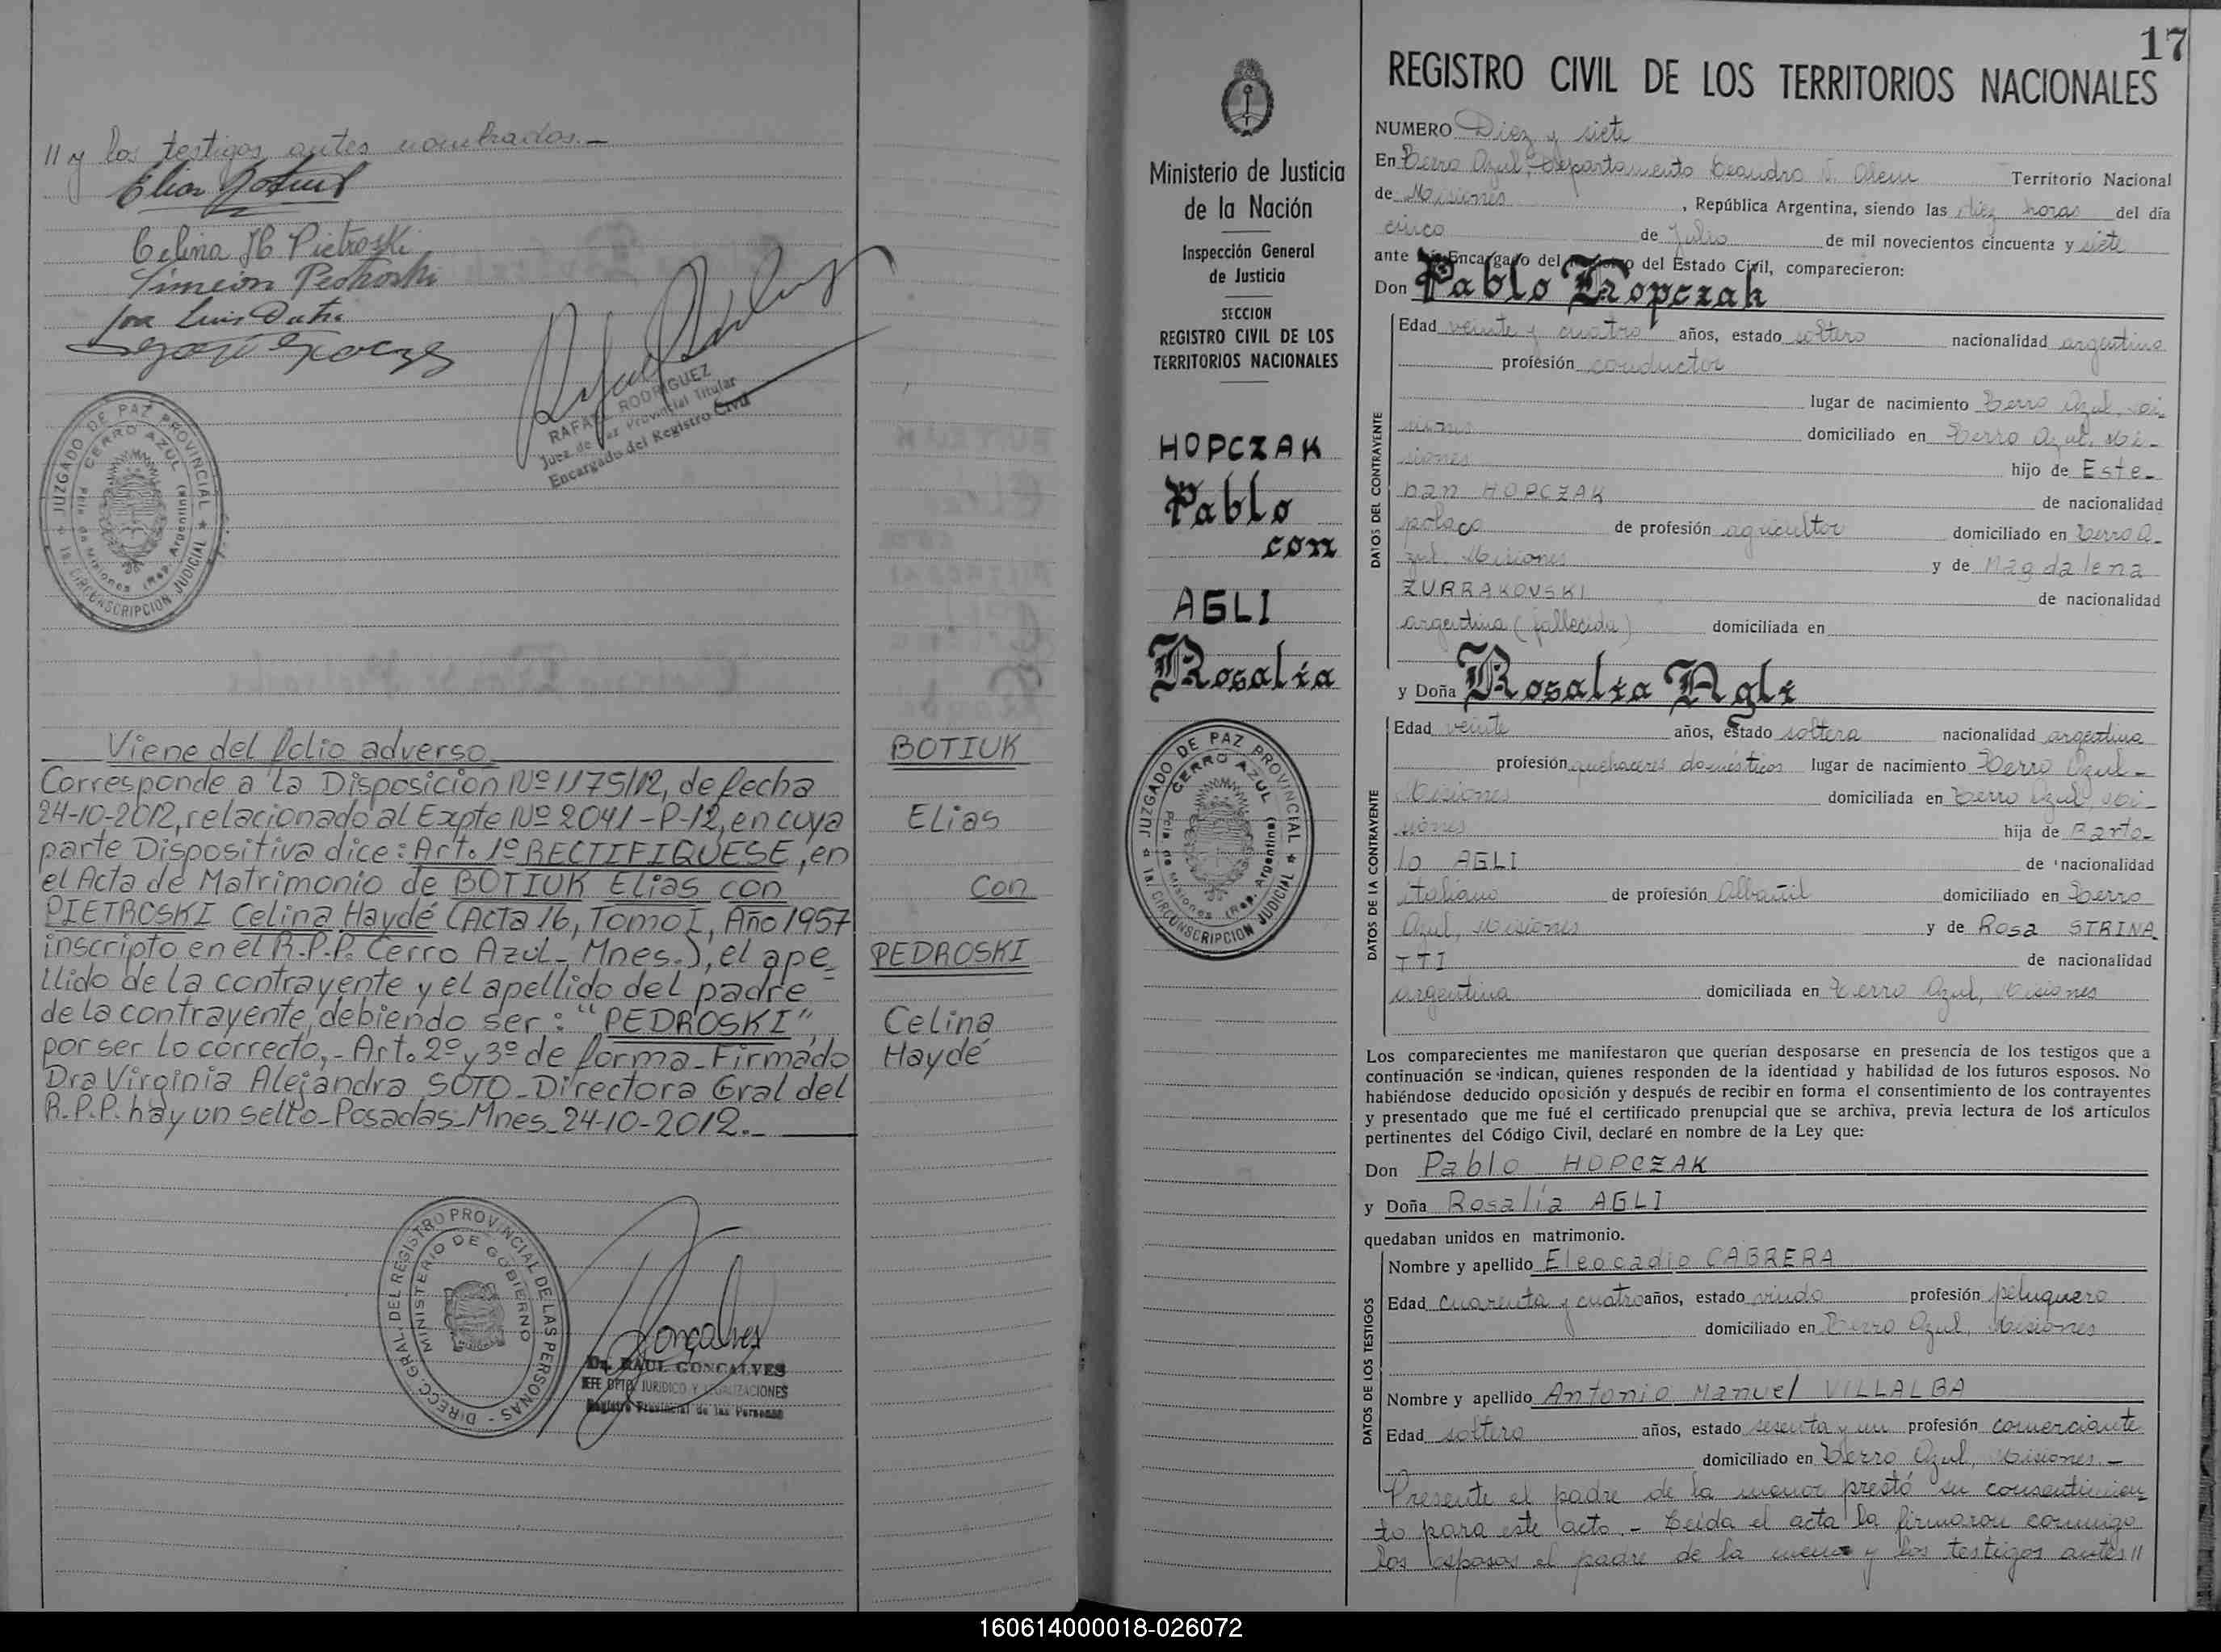 // y los testigos antes nombrados.-
Elias Botiuk
Celina H Pietroski
Simeón Pedroski
RAFAEL RODRIGUEZ
Juez de Paz Provincial Titular
Encargado del Registro Civil
JUZGADO DE PAZ PROVINCIAL
CERRO AZUL
Pcia. de Misiones (Rep. Argentina)
1a. CIRCUNSCRIPCION JUDICIAL
Viene del folio adverso
Corresponde a la Disposición Nº 1175/12, de fecha
24-10-2012, relacionado al Expte Nº 2041-P-12, en cuya
parte Dispositiva dice: Art. 1º RECTIFIQUESE, en
el Acta de Matrimonio de BOTIUK Elias con
PIETROSKI Celina Haydé (Acta 16, Tomo I, Año 1957
inscripto en el R.P.P. Cerro Azúl - Mnes.), el ape
llido de la contrayente y el apellido del padre
de la contrayente, debiendo ser: "PEDROSKI",
por ser lo correcto,- Art. 2º y 3º de forma - Firmado
Dra Virginia Alejandra SOTO - Directora Gral del
R.P.P. hay un sello - Posadas - Mnes - 24-10-2012.-
BOTIUK
Elias
Con
PEDROSKI
Celina
Haydé
DIRECC. GRAL. DEL REGISTRO PROVINCIAL DE LAS PERSONAS
MINISTERIO DE GOBIERNO
Gonçalves
Dr. RAUL GONCALVES
JEFE DPTO. JURIDICO Y LEGALIZACIONES
Registro Provincial de las Personas
17
Ministerio de Justicia
de la Nación
Inspección General
de Justicia
SECCION
REGISTRO CIVIL DE LOS
TERRITORIOS NACIONALES
HOPCZAK
Pablo
con
AGLI
Rosalía
JUZGADO DE PAZ PROVINCIAL
CERRO AZUL
Pcia de Misiones (Rep. Argentina)
1a. CIRCUNSCRIPCION JUDICIAL
REGISTRO CIVIL DE LOS TERRITORIOS NACIONALES
NUMERO Diez y siete
En Cerro Azul, departamento Leandro N. Alem Territorio Nacional
de Misiones, República Argentina, siendo las diez horas del día
cinco de Julio de mil novecientos cincuenta y siete
ante mi Encargado del Registro del Estado Civil, comparecieron:
Don Pablo Hopczak
DATOS DEL CONTRAYENTE
Edad veinte y cuatro años, estado soltero nacionalidad argentina
profesión conductor
lugar de nacimiento Cerro Azul, Mi-
siones domiciliado en Cerro Azul, Mi-
siones hijo de Este-
ban HOPCZAK de nacionalidad
polaca de profesión agricultor domiciliado en Cerro A-
zul, Misiones y de Magdalena
ZURRAKOVSKI de nacionalidad
argentina (fallecida) domiciliada en
y Doña Rosalía Agli
DATOS DE LA CONTRAYENTE
Edad veinte años, estado soltera nacionalidad argentina
profesión quehaceres domésticos lugar de nacimiento Cerro Azul-
Misiones domiciliada en Cerro Azul, Mi-
siones hija de Barto-
lo AGLI de nacionalidad
italiano de profesión Albañil domiciliado en Cerro
Azul, Misiones y de Rosa STRINA
TTI de nacionalidad
argentina domiciliada en Cerro Azul, Misiones
Los comparecientes me manifestaron que querían desposarse en presencia de los testigos que a
continuación se indican, quienes responden de la identidad y habilidad de los futuros esposos. No
habiéndose deducido oposición y después de recibir en forma el consentimiento de los contrayentes
y presentado que me fué el certificado prenupcial que se archiva, previa lectura de los artículos
pertinentes del Código Civil, declaré en nombre de la Ley que:
Don Pablo HOPCZAK
y Doña Rosalía AGLI
quedaban unidos en matrimonio.
DATOS DE LOS TESTIGOS
Nombre y apellido Eleocadio CABRERA
Edad cuarenta y cuatro años, estado viudo profesión peluquero
domiciliado en Cerro Azul, Misiones
Nombre y apellido Antonio Manuel VILLALBA
Edad soltero años, estado sesenta y un profesión comerciante
domiciliado en Cerro Azul, Misiones.-
Presente el padre de la menor prestó su consentimien
to para este acto.- Leída el acta la firmaron conmigo
los esposos el padre de la menor y los testigos antes //
160614000018-026072